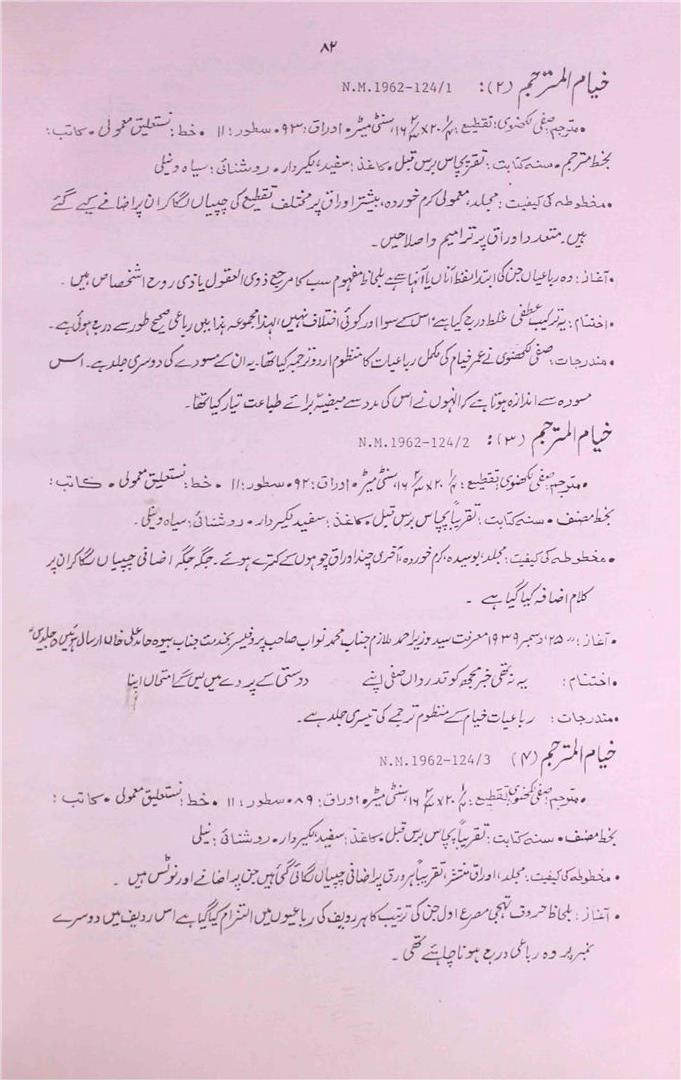 ۸۲
خیام المترجم (۲): N.M.1962-124/1
• مترجم: صفی لکھنوی • تقطیع: ۲۰x۱۶ سنٹی میٹر • اوراق: ۹۳ • سطور: ۱۱ • خط: نستعلیق معمولی • کاتب:
بخط مترجم • سنہ کتابت: تقریباً پچاس برس قبل • کاغذ: سفید، لکیردار • روشنائی: سیاہ و نیلی
• مخطوطہ کی کیفیت: مجلد، معمولی کرم خوردہ، بیشتر اوراق پر مختلف تقطیع کی چیپیاں لگا کر ان پر اضافے کیے گئے
ہیں۔ متعدد اوراق پر ترامیم و اصلاحیں۔
• آغاز: وہ رباعیاں جن کی ابتدا لفظ آناں یا آنہا سے ہے بلحاظ مفہوم سب کا مرجع ذوی العقول یا ذی روح اشخصاص ہیں۔
• اختتام: یہ ترکیب عطفی غلط درج کیا ہے، اس کے سوا اور کوئی اختلاف نہیں، لہٰذا مجموعہ ہذا میں رباعی صحیح طور سے درج ہوئی ہے۔
• مندرجات: صفی لکھنوی نے عمر خیام کی مکمل رباعیات کا منظوم اردو ترجمہ کیا تھا۔ یہ ان کے مسودے کی دوسری جلد ہے۔ اس
مسودہ سے اندازہ ہوتا ہے کہ انہوں نے اس کی مدد سے مبیضہ برائے طباعت تیار کیا تھا۔
خیام المترجم (۳): N.M.1962-124/2
• مترجم: صفی لکھنوی • تقطیع: ۲۰x۱۶ سنٹی میٹر • اوراق: ۹۲ • سطور: ۱۱ • خط: نستعلیق معمولی • کاتب:
بخط مصنف • سنہ کتابت: تقریباً پچاس برس قبل • کاغذ: سفید لکیردار • روشنائی: سیاہ و نیلی۔
• مخطوطہ کی کیفیت: مجلد، بوسیدہ، کرم خوردہ، آخری چند اوراق چوہوں کے کترے ہوئے۔ جگہ جگہ اضافی چیپیاں لگا کر ان پر
کلام اضافہ کیا گیا ہے۔
• آغاز: ۲۵ دسمبر ۱۹۳۹ معرفت سید وزیر احمد ملازم جناب محمد نواب صاحب پروفیسر بخدمت جناب بیوہ حامد علی خاں ارسال ہوئیں ۵ جلدیں
• اختتام: یہ نہ تھی خبر مجھ کو قدرداں صفی اپنے دوستی کے پردے میں لیں گے امتحاں اپنا
• مندرجات: رباعیات خیام کے منظوم ترجمے کی تیسری جلد ہے۔
خیام المترجم (۴) N.M.1962-124/3
• مترجم: صفی لکھنوی • تقطیع: ۲۰x۱۶ سنٹی میٹر • اوراق: ۸۹ • سطور: ۱۱ • خط: نستعلیق معمولی • کاتب:
بخط مصنف • سنہ کتابت: تقریباً پچاس برس قبل • کاغذ: سفید، لکیردار • روشنائی: نیلی
• مخطوطہ کی کیفیت: مجلد، اوراق منتشر، تقریباً ہر ورق پر اضافی چیپیاں لگائی گئی ہیں جن پہ اضافے اور نوٹس ہیں۔
• آغاز: بلحاظ حروف تہجی مصرع اول جن کی ترتیب کا ہر ردیف کی رباعیوں میں التزام کیا گیا ہے اس ردیف میں دوسرے
نمبر پر وہ رباعی درج ہونا چاہئے تھی۔